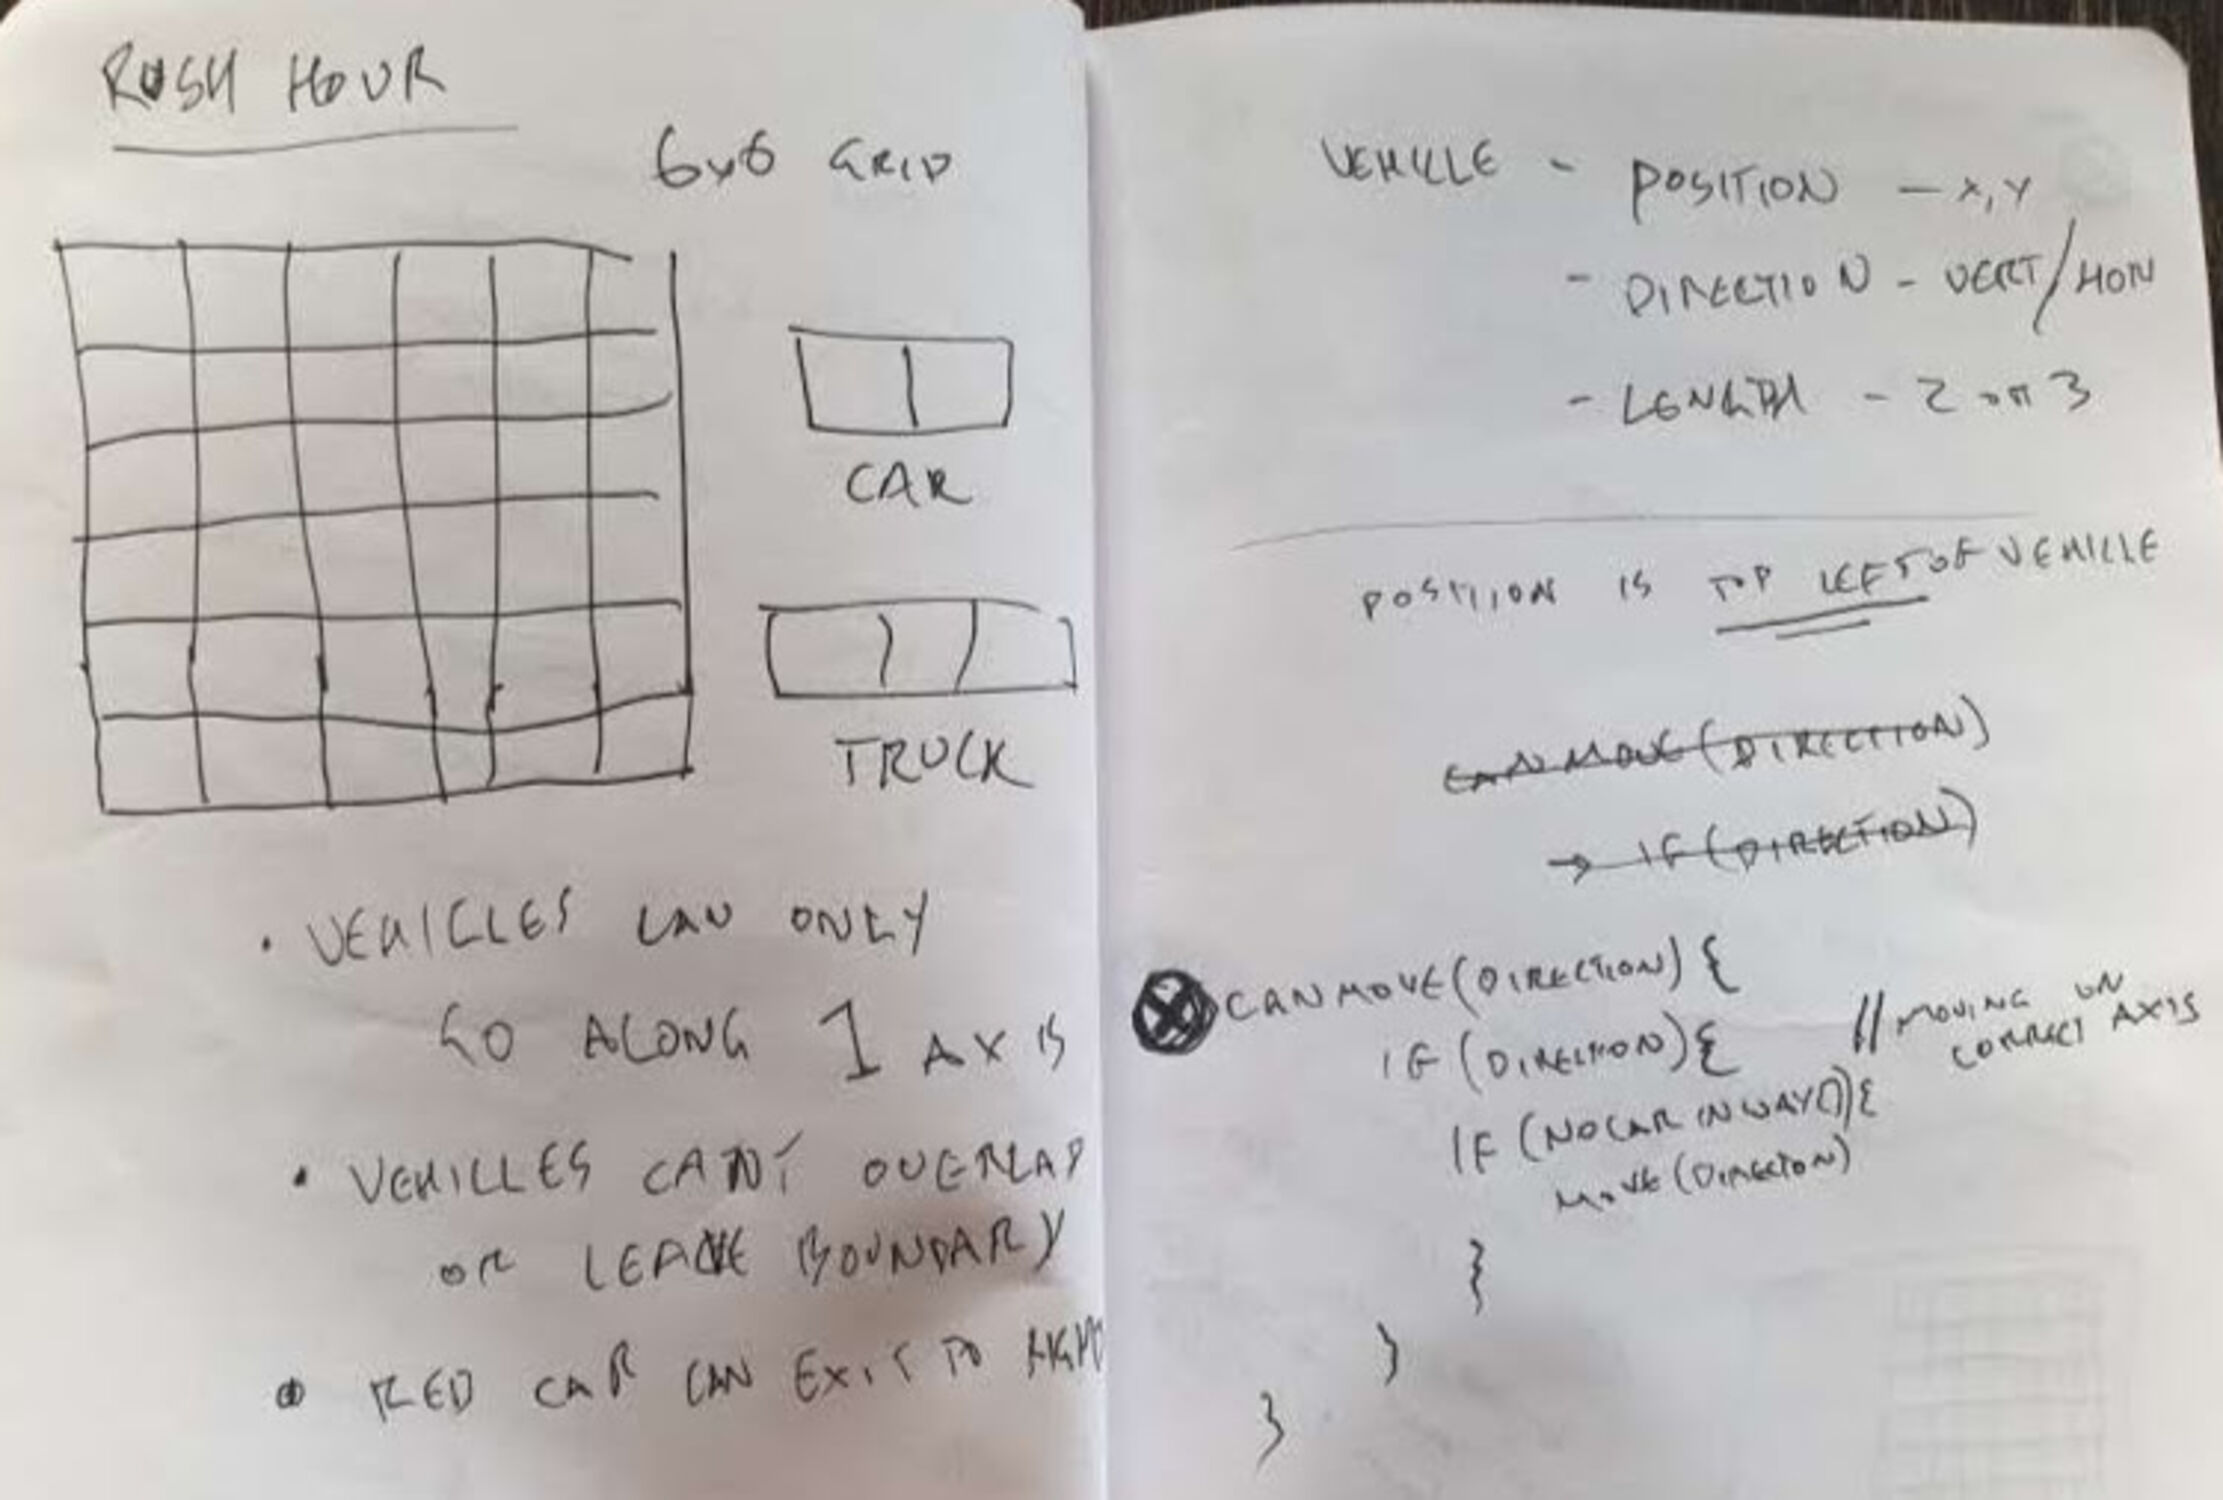 RUSH HOUR
6x6 GRID
CAR
TRUCK
• VEHICLES CAN ONLY
GO ALONG 1 AXIS
• VEHICLES CAN'T OVERLAP
OR LEAVE BOUNDARY
• RED CAR CAN EXIT TO RIGHT
VEHICLE - POSITION - X,Y
- DIRECTION - VERT/HOR
- LENGTH - 2 OR 3
POSITION IS TOP LEFT OF VEHICLE
CAN MOVE (DIRECTION)
→ IF (DIRECTION)
CANMOVE (DIRECTION) {
IF (DIRECTION) { // MOVING ON
CORRECT AXIS
IF (NOCARINWAY()) {
MOVE (DIRECTION)
}
}
}